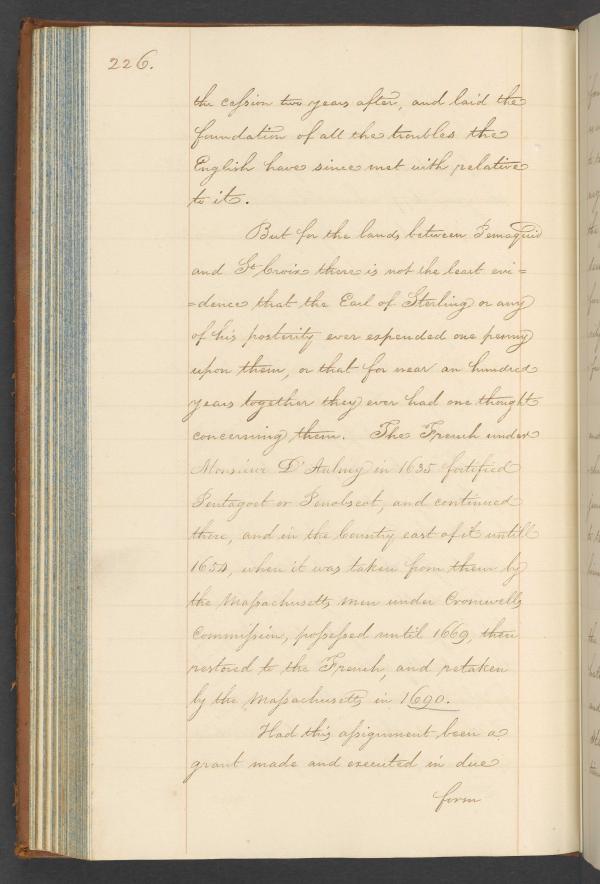 226.
the cession two years after, and laid the
foundation of all the troubles the
English have since met with relative
to it.
But for the lands between Pemaquid
and St Croix there is not the least evi=
=dence that the Earl of Sterling or any
of his posterity ever expended one penny
upon them, or that for near an hundred
years together they ever had one thought
concerning them. The French under
Monsieur D'Aulney in 1635 fortified
Pentagoet or Penobscot, and continued
there, and in the Country east of it untill
1654, when it was taken from them by
the Massachusetts men under Cromwells
Commission, possessed until 1669, then
restored to the French, and retaken
by the Massachusetts in 1690.
Had this assignment been a
grant made and executed in due
form